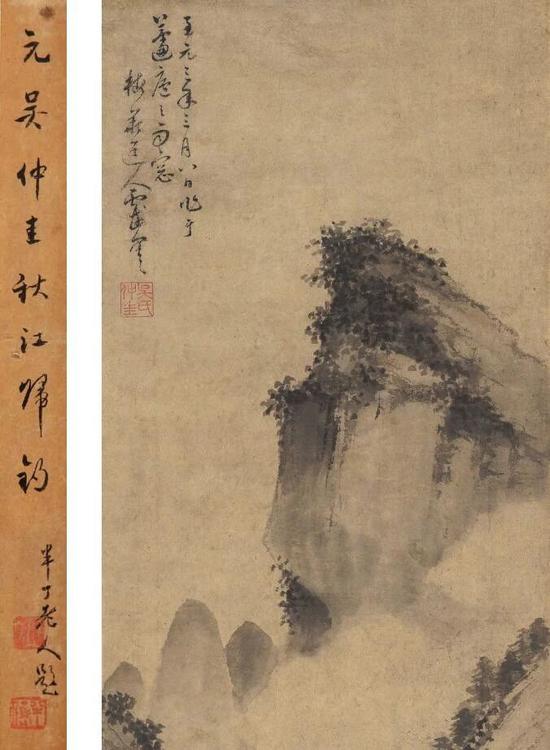 元吳仲圭秋江歸釣
半丁老人題
至元三年三月八日作于
廬之雨窓
梅華道人戲墨
吳氏
仲圭